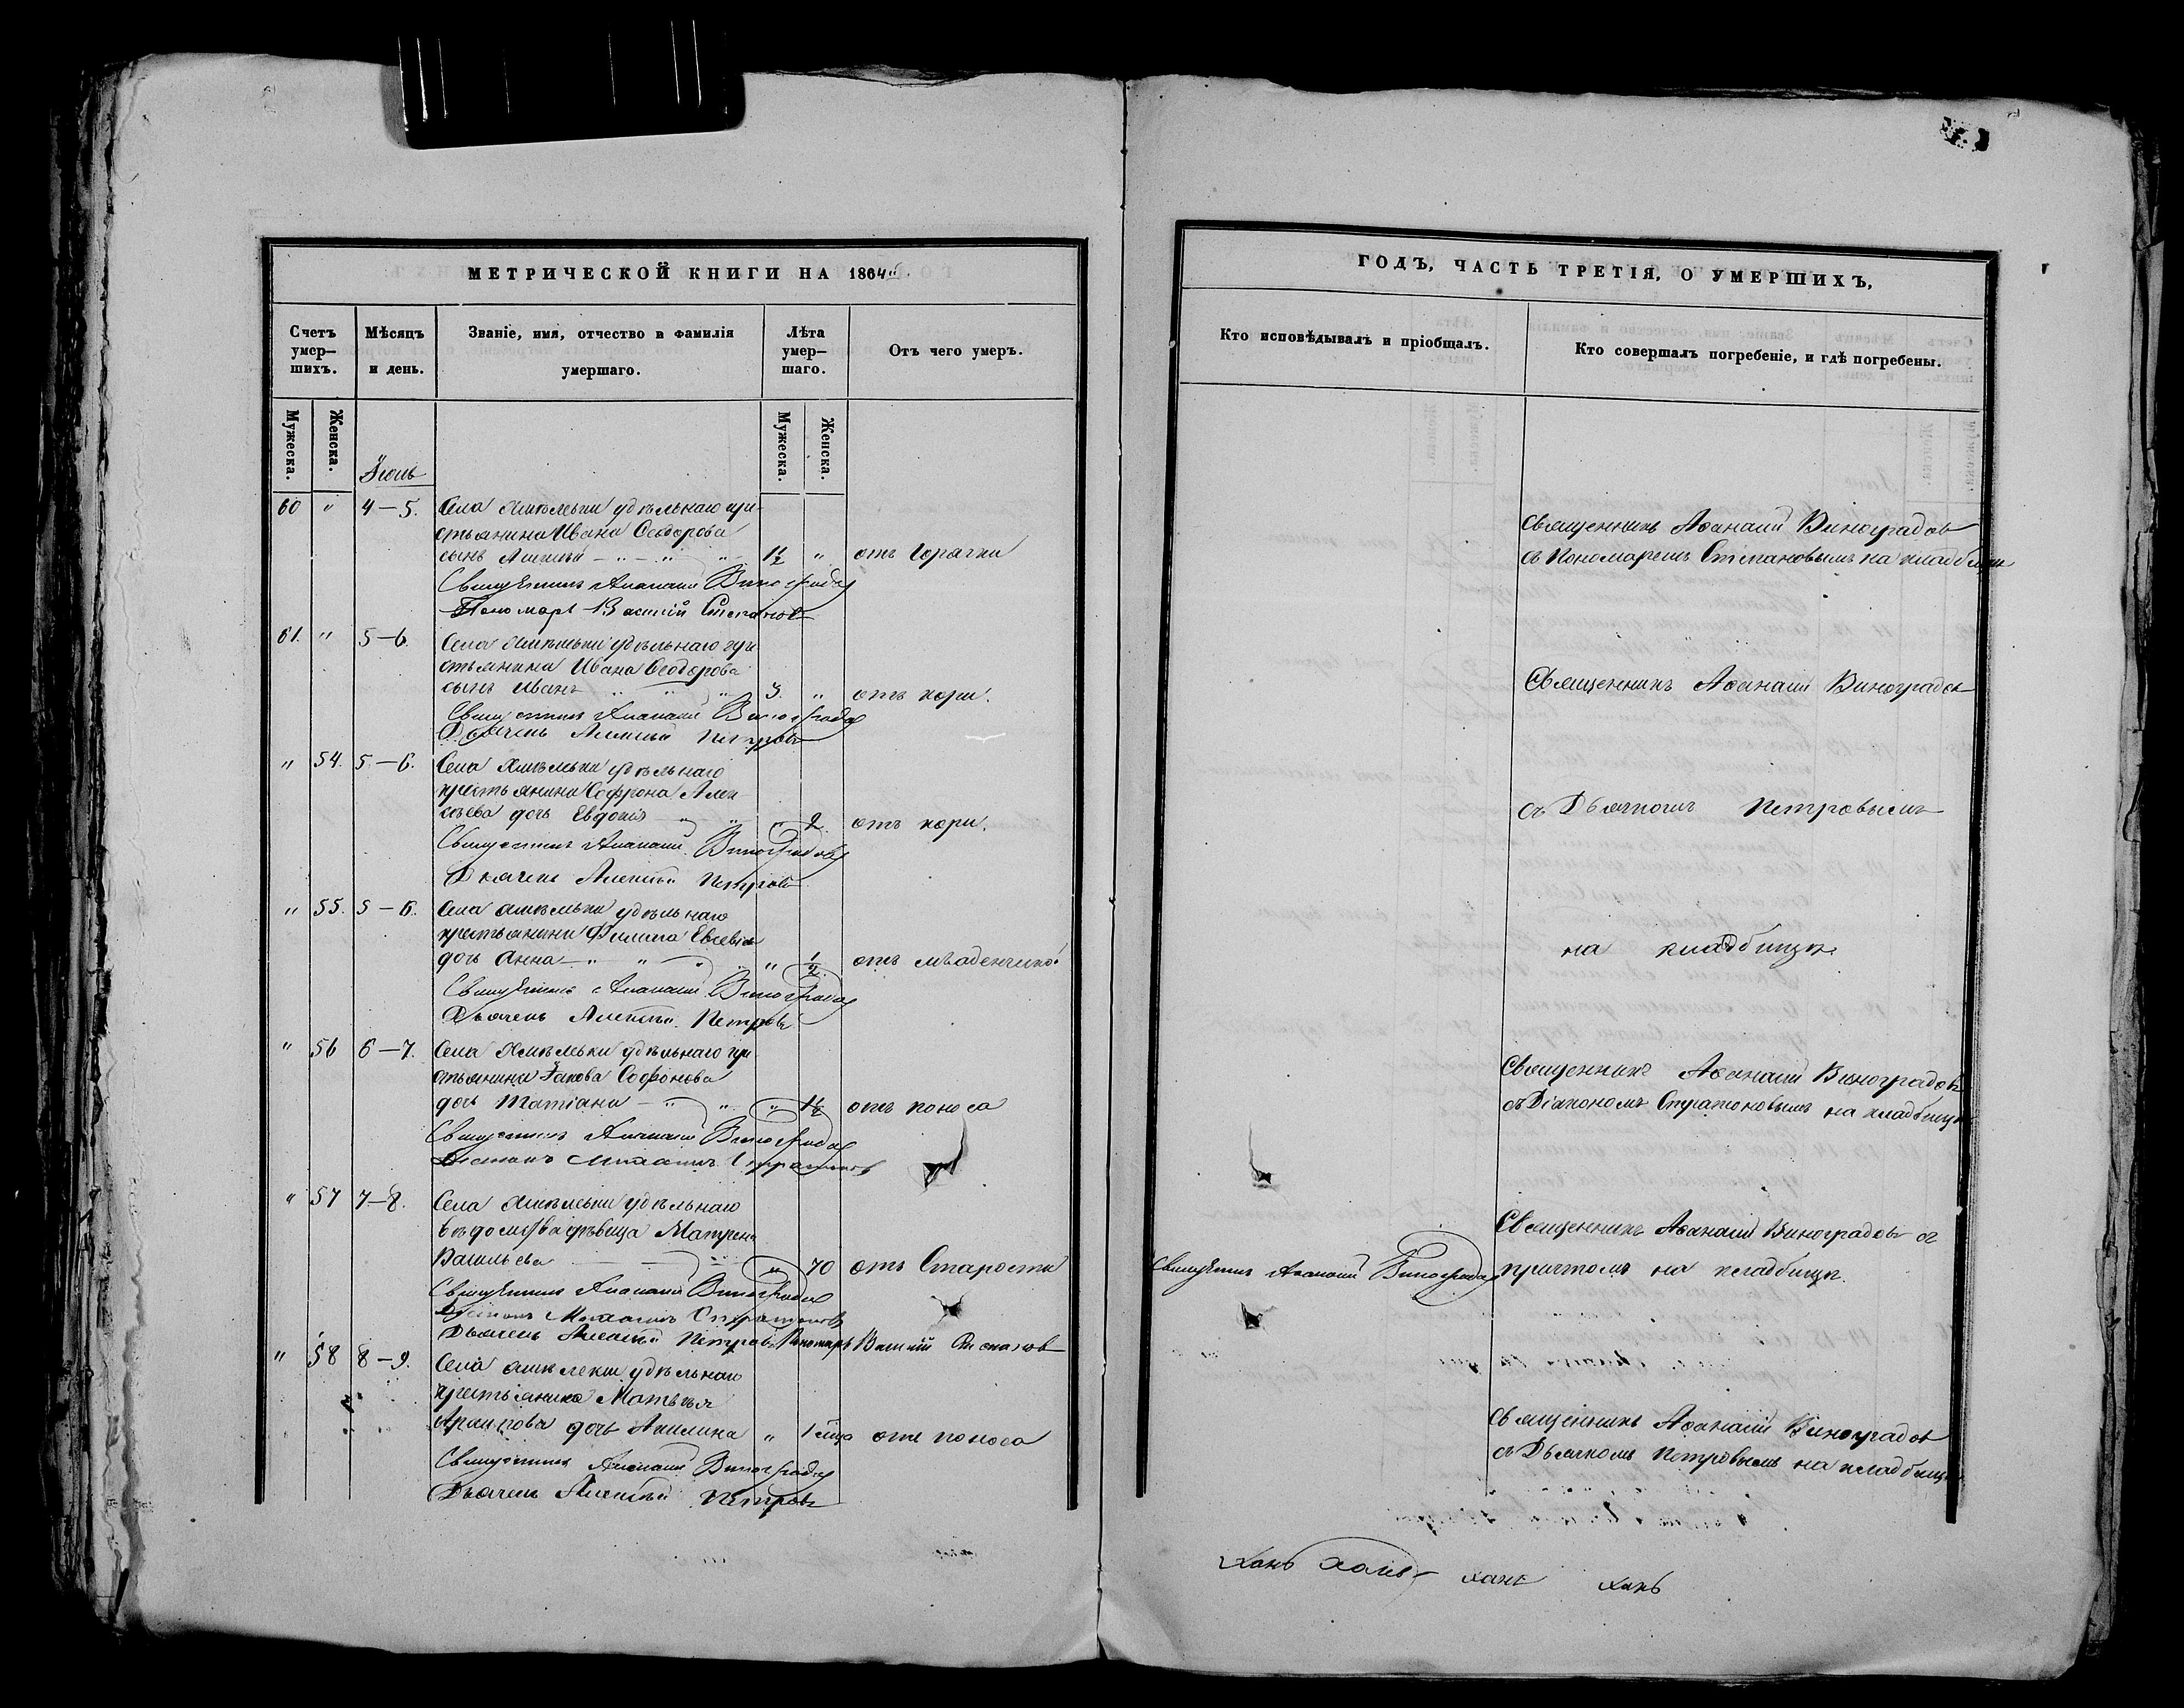 МЕТРИЧЕСКОЙ КНИГИ НА 1864й.
Счетъ умер—шихъ.
Мѣсяцъ и день.
Званіе, имя, отчество и фамилія умершаго.
Лѣта умер—шаго.
Отъ чего умеръ.
Мужеска.
Женска.
Мужеска.
Женска.
Іюль
60 " 4—5. Села удѣльнаго кре-
стьянина Ивана Ѳеодорова
сынъ Алексѣй 1 1/2 " отъ горячки
Священникъ Аѳанасій Виноградовъ
Пономарь Василій Степановъ
61. " 5—6. Села удѣльнаго кре
стьянина Ивана Ѳеодорова
сынъ Иванъ " " " 3. " отъ кори.
Священникъ Аѳанасій Виноградовъ
Дьячекъ Алексѣй Петровъ
" 54. 5.—6. Села удѣльнаго
крестьянина Софрона Алек
сѣева дочь Евдокія " " " 2. отъ кори.
Священникъ Аѳанасій Виноградовъ
Дьячекъ Алексѣй Петровъ
" 55. 5—6. Села удѣльнаго
крестьянина Филипа Евсевіева
дочь Анна " " " " 1/2 отъ младенческой
Священникъ Аѳанасій Виноградовъ
Дьячекъ Алексѣй Петровъ
" 56 6—7. Села удѣльнаго кре
стьянина Іакова Софронова
дочь Татіана " " " 1 1/2 отъ поноса
Священникъ Аѳанасій Виноградовъ
Діаконъ Стратоновъ
" 57 7—8. Села удѣльнаго
вѣдомства дѣвица Матрена
Васильева " 70 отъ Старости
Священникъ Аѳанасій Виноградовъ
Діаконъ Стратоновъ
Дьячекъ Алексѣй Петровъ Пономарь Василій Степановъ
" 58 8—9. Села удѣльнаго
крестьянина Матвѣя
Архипова дочь Акилина " 1 мѣс отъ поноса
Священникъ Аѳанасій Виноградовъ
Дьячекъ Алексѣй Петровъ
ГОДЪ, ЧАСТЬ ТРЕТІЯ, О УМЕРШИХЪ,
Кто исповѣдывалъ и пріобщалъ.
Кто совершалъ погребеніе, и гдѣ погребены.
Священникъ Аѳанасій Виноградовъ
съ Пономаремъ Степановымъ на кладбищѣ
Священникъ Аѳанасій Виноградовъ
съ Дьячкомъ Петровымъ
на кладбищѣ
Священникъ Аѳанасій Виноградовъ
съ Діакономъ Стратоновымъ на кладбищѣ
Священникъ Аѳанасій Виноградовъ
Священникъ Аѳанасій Виноградовъ съ
причтомъ на кладбищѣ.
Священникъ Аѳанасій Виноградовъ
съ Дьячкомъ Петровымъ на кладбищѣ